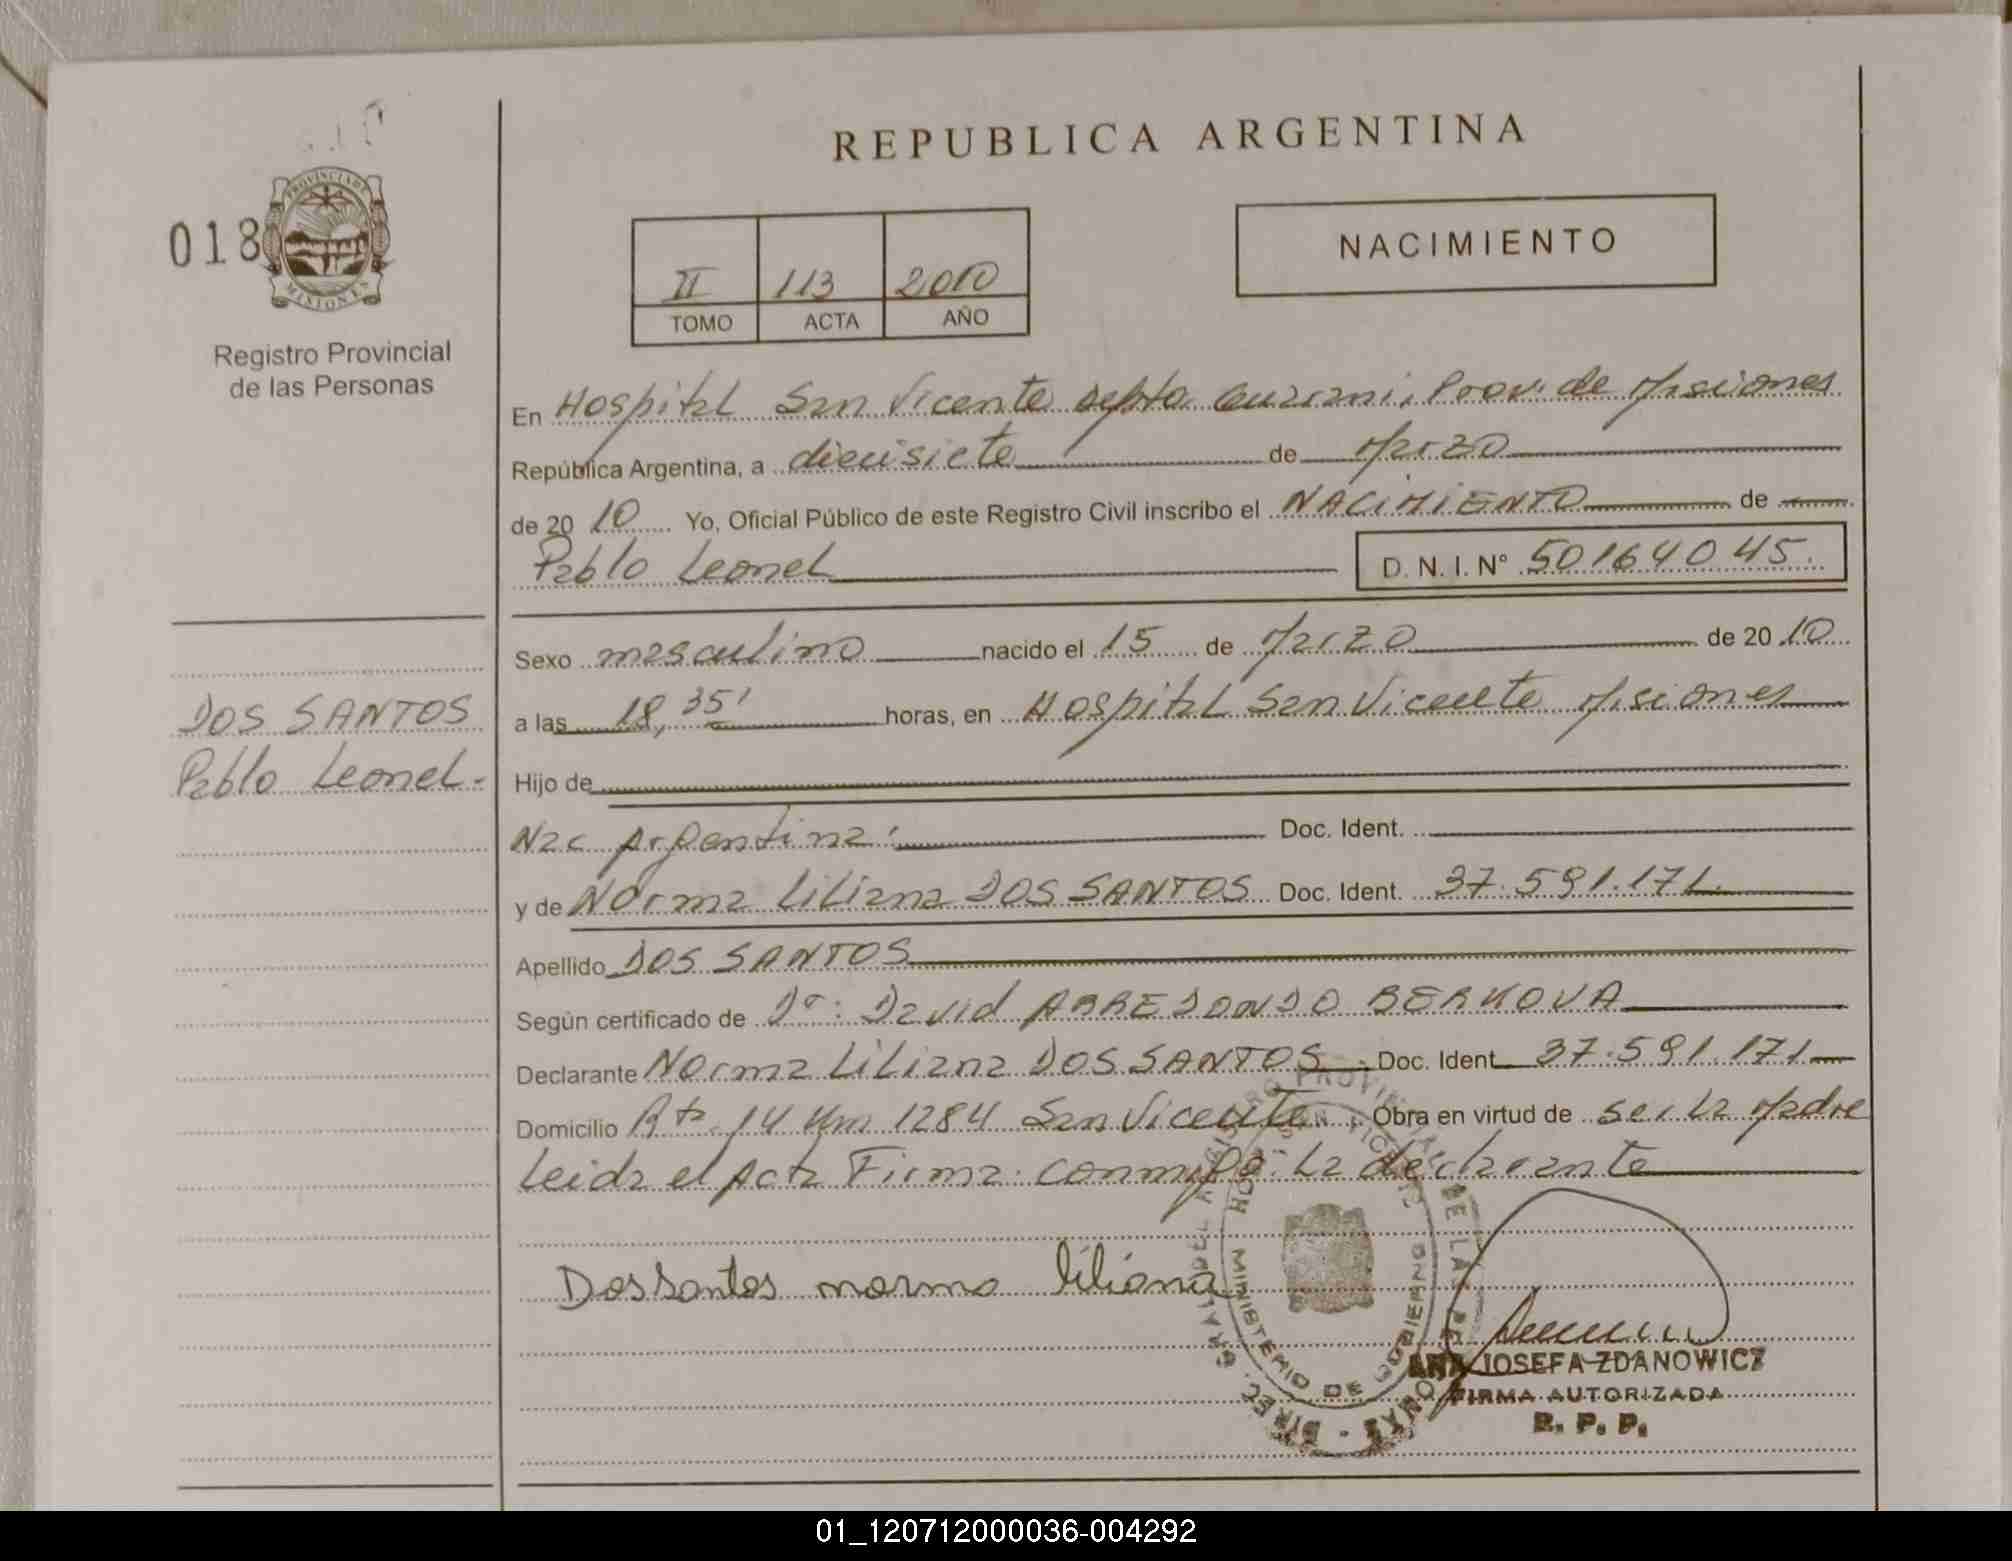 REPUBLICA ARGENTINA
018
PROVINCIA DE
MISIONES
Registro Provincial
de las Personas
II 113 2010
TOMO ACTA AÑO
NACIMIENTO
En Hospital San Vicente depto Guarani, Prov. de Misiones
República Argentina, a diecisiete de Marzo
de 2010 Yo, Oficial Público de este Registro Civil inscribo el NACIMIENTO de
Pablo Leonel D. N. I. N° 50164045.
Sexo masculino nacido el 15 de Marzo de 2010
a las 18,35' horas, en Hospital San Vicente Misiones
DOS SANTOS
Pablo Leonel-
Hijo de
Nac Argentina: Doc. Ident.
y de Norma Liliana DOS SANTOS Doc. Ident. 37.591.171.
Apellido DOS SANTOS
Según certificado de Dr: David ARREDONDO BERMOVA
Declarante Norma Liliana DOS SANTOS. Doc. Ident 37.591.171
Domicilio Rta. 14 Km 1284 San Vicente. Obra en virtud de ser la Madre
Leida el Acta Firma conmigo La declarante
Dossantos norma liliana
DIREC. GRAL. DEL REGISTRO PROVINCIAL DE LAS PERSONAS
MINISTERIO DE GOBIERNO
ANA JOSEFA ZDANOWICZ
FIRMA AUTORIZADA
R. P. P.
01_120712000036-004292